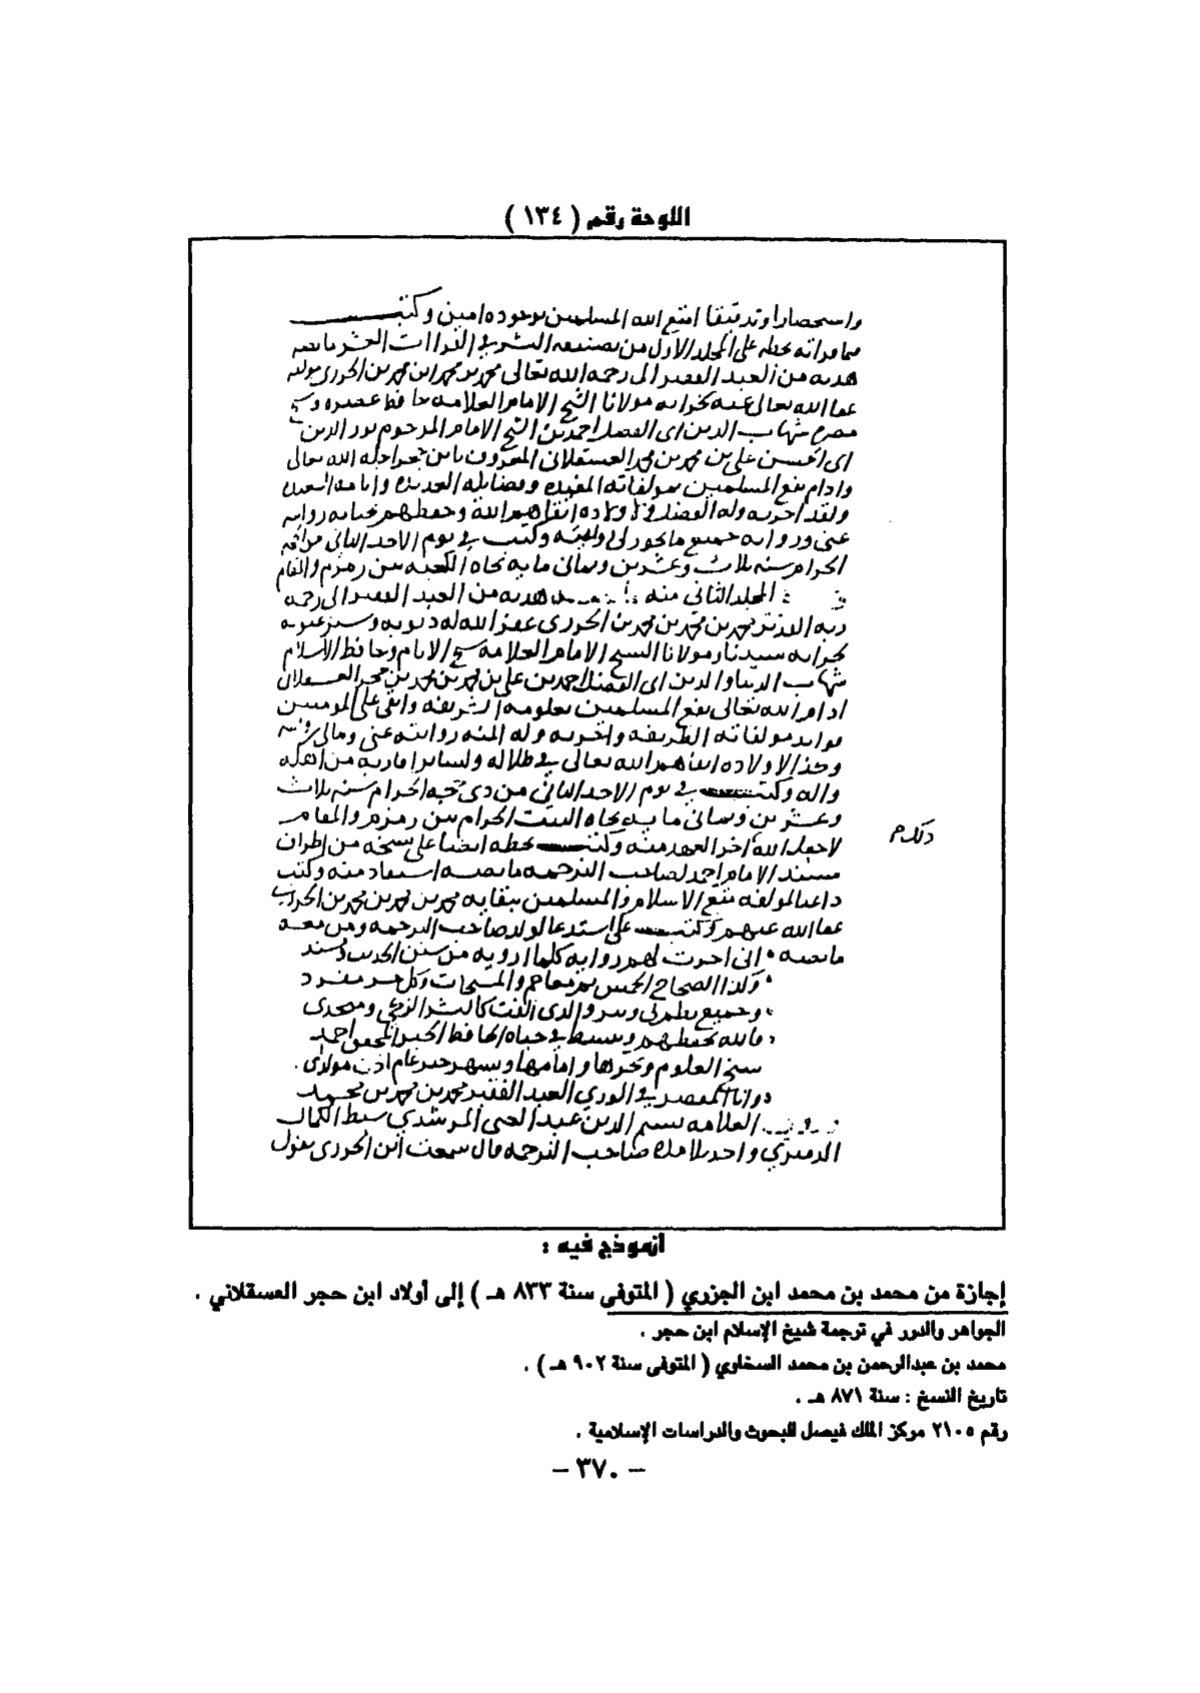 اللوحة رقم ( ١٣٤ )
واستحضارا وتدقيقا امتع الله المسلمين بوجوده امين وكتب
مما قراته بخطه على المجلد الاول من تصنيفه النشر في القراات العشر ما نصه
هديه من العبد الفقير الى رحمه الله تعالى محمد بن محمد ابن محمد بن الجزري مولفه
عفا الله تعالى عنه لخزانه مولانا الشيخ الامام العلامه حافظ عصره
مصره شهاب الدين ابى الفضل احمد بن الشيخ الامام المرحوم نور الدين
ابى الحسن على بن محمد بن محمد العسقلانى المعروف بابن حجر اجله الله تعالى
وادام نفع المسلمين بمولفاته المفيده وفضايله العديده وايامه السعيده
ولقد اجزته وله الفضل ولاولاده ابقاهم الله وحفظهم بحياته روايه
عنى وروايه جميع ما يجوز لى وكتب في يوم الاحد الثانى من
الحرام سنه ثلاث وعشرين وثمانى مايه تجاه الكعبه بين زمزم والمقام
المجلد الثانى منه هديه من العبد الفقير الى رحمه
ربه محمد بن محمد بن محمد بن الجزري غفر الله له ذنوبه وستر عيوبه
لخزانه سيدنا ومولانا الشيخ الامام العلامه شيخ الانام وحافظ الاسلام
شهاب الدنيا والدين ابى الفضل احمد بن على بن محمد بن محمد بن حجر العسقلانى
ادام الله تعالى نفع المسلمين بعلومه الشريفه وابقى على المومنين
فوايد مولفاته الظريفه واجزته وله المنه روايته عنى ومالى
وكذا لاولاده ابقاهم الله تعالى في ظلاله ولساير اقاربه من اهله
واله وكتب في يوم الاحد الثانى من ذى حجه الحرام سنه ثلاث
وعشرين وثمانى مايه تجاه البيت الحرام بين زمزم والمقام
لا جعله الله اخر العهد منه وكتب بخطه ايضا على نسخه من اطراف
ذلك م
مسند الامام احمد لصاحب الترجمه ما نصه استفاد منه وكتب
داعيا لمولفه متع الاسلام والمسلمين ببقايه محمد بن محمد بن محمد بن الجزرى
عفا الله عنهم وكتب على استدعا لولد صاحب الترجمه ومن معه
ما نصه انى اجزت لهم روايه كلما ارويه من سنن الحديث ومسند
وكذا الصحاح الخمس ثم معاجم والمشيخات وكل جزء مفرد
وجميع نظم لى ونثر والذى الفت كالنشر الزكى ومنجدى
فالله يحفظهم ويبسط في حياه الحافظ الحبر المحقق احمد
شيخ العلوم وبحرها وامامها
وانا المقصر في الورى العبد الفقير محمد بن محمد بن محمد
العلامه نسيم الدين عبد الغنى المرشدي سبط الكمال
الدميري واحد تلامذه صاحب الترجمه قال سمعت ابن الجزرى يقول
أنموذج فيه :
إجازة من محمد بن محمد ابن الجزري ( المتوفى سنة ٨٣٣ هـ ) إلى أولاد ابن حجر العسقلاني .
الجواهر والدرر في ترجمة شيخ الإسلام ابن حجر .
محمد بن عبدالرحمن بن محمد السخاوي ( المتوفى سنة ٩٠٢ هـ ) .
تاريخ النسخ : سنة ٨٧١ هـ .
رقم ٢١٠٥ مركز الملك فيصل للبحوث والدراسات الإسلامية .
– ٣٧٠ –